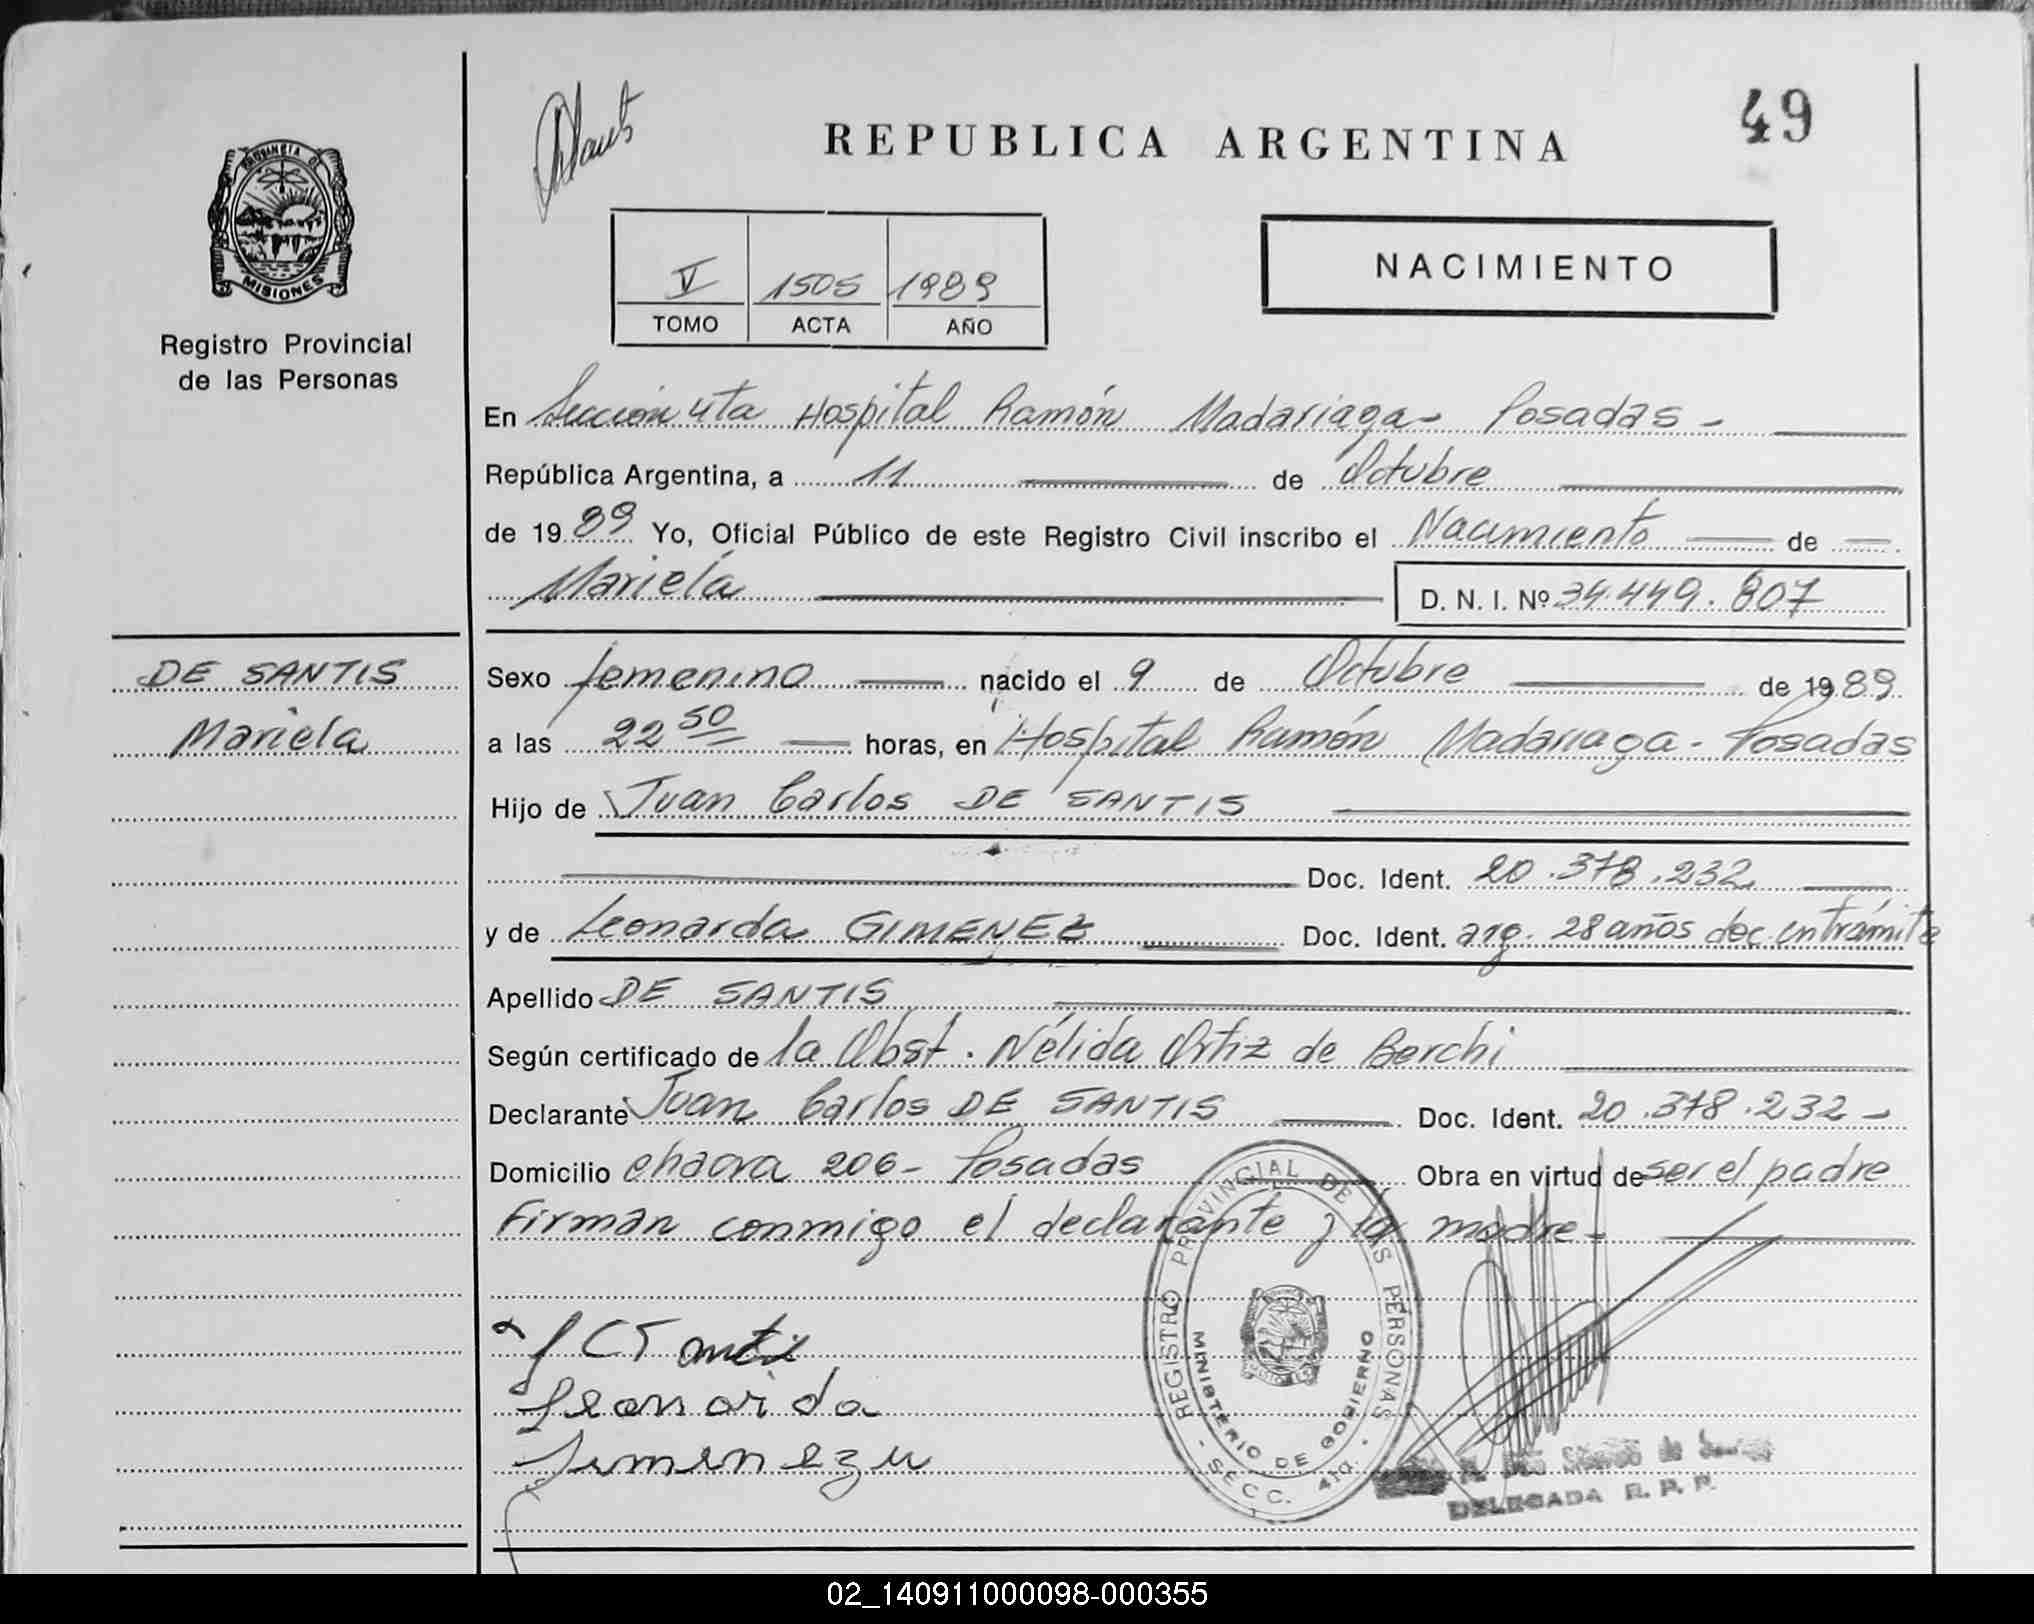 49
REPUBLICA ARGENTINA
PROVINCIA DE
MISIONES
Registro Provincial
de las Personas
NACIMIENTO
V 1505 1989
TOMO ACTA AÑO
En Sección 4ta Hospital Ramón Madariaga - Posadas -
República Argentina, a 11 de Octubre
de 1989 Yo, Oficial Público de este Registro Civil inscribo el Nacimiento de
Mariela D. N. I. Nº 34.449.807
DE SANTIS
Mariela
Sexo femenino nacido el 9 de Octubre de 1989
a las 22 50 horas, en Hospital Ramón Madariaga - Posadas
Hijo de Juan Carlos DE SANTIS
Doc. Ident. 20.378.232
y de Leonarda GIMENEZ Doc. Ident. arg. 28 años doc. en trámite
Apellido DE SANTIS
Según certificado de la Obst. Nélida Ortiz de Berchi
Declarante Juan Carlos DE SANTIS Doc. Ident. 20.378.232 -
Domicilio chacra 206 - Posadas Obra en virtud de ser el padre
Firman conmigo el declarante y la madre -
REGISTRO PROVINCIAL DE LAS PERSONAS
MINISTERIO DE GOBIERNO
- SECC. 4ta. -
DELEGADA R. P. P.
02_140911000098-000355